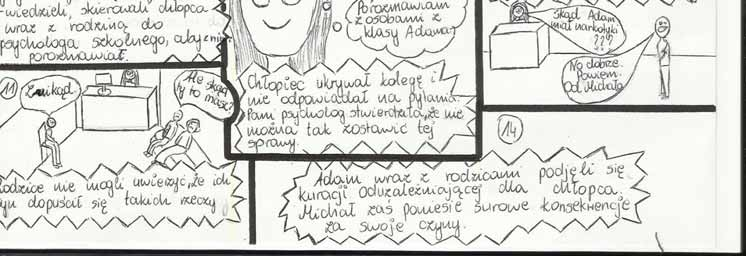 -wiedzieli, skierowali chłopca
wraz z rodziną do
psychologa szkolnego, aby z nim
porozmawiał.
Porozmawiam
z osobami z
klasy Adama?
Skąd Adam
miał narkotyki
???
No dobrze.
Powiem.
Od Michała
11
Znikąd.
Ale skąd
ty to masz?
Rodzice nie mogli uwierzyć, że ich
syn dopuścił się takich rzeczy
Chłopiec ukrywał kolegę i
nie odpowiadał na pytania.
Pani psycholog stwierdziła, że nie
można tak zostawić tej
sprawy.
14
Adam wraz z rodzicami podjęli się
kuracji oduzależniającej dla chłopca.
Michał zaś poniesie surowe konsekwencje
za swoje czyny.